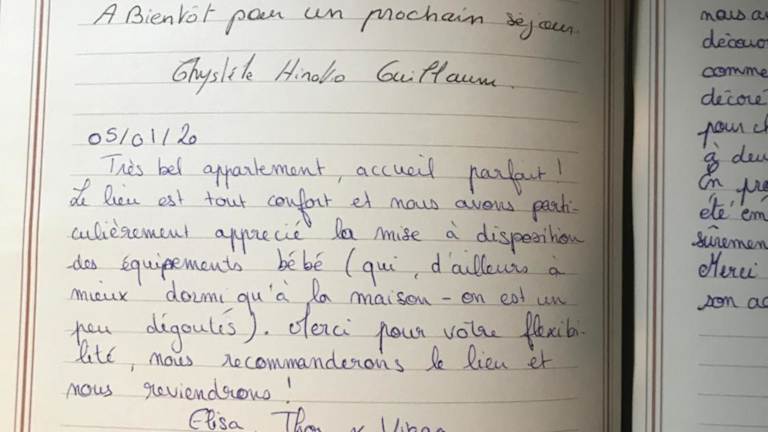 A Bientôt pour un prochain séjour.
Hinoko Guillaume
05/01/20
Très bel appartement, accueil parfait !
Le lieu est tout confort et nous avons parti-
culièrement apprecié la mise à disposition
des équipements bébé (qui, d'ailleurs à
mieux dormi qu'à la maison - on est un
peu dégoutés). Merci pour votre flexibi-
lité, nous recommanderons le lieu et
nous reviendrons !
Elisa,
nous
comme
décoré
pour
à
En
été
Merci
son